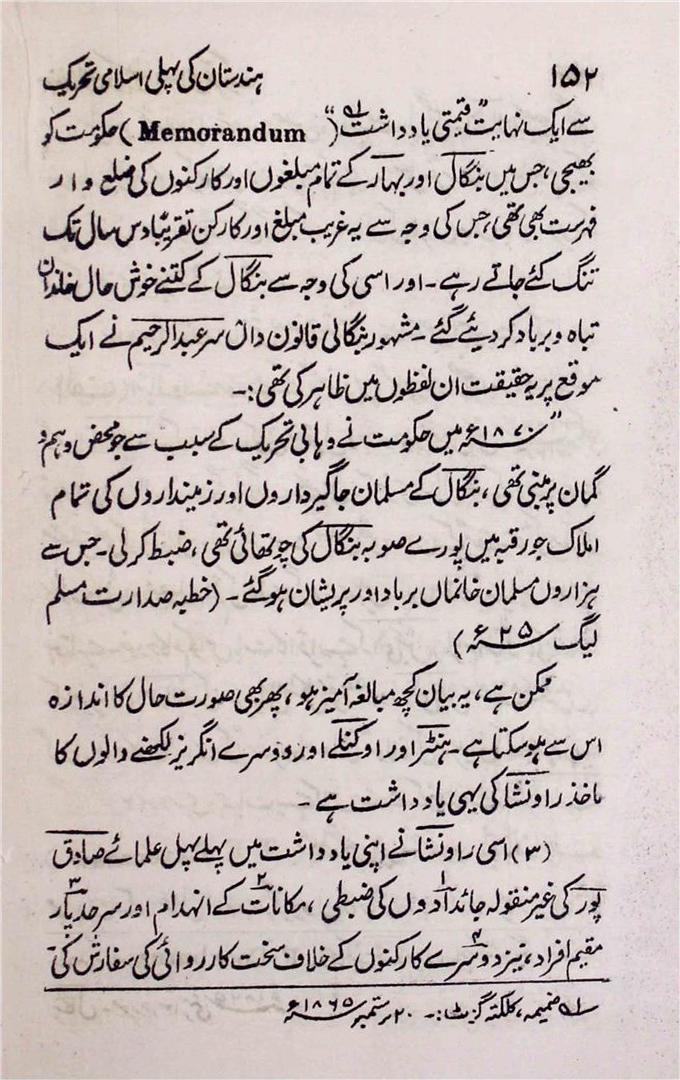 ۱۵۲ ہندستان کی پہلی اسلامی تحریک
سے ایک نہایت "قیمتی یادداشت ؂۱" (Memorandum) حکومت کو
بھیجی، جس میں بنگال اور بہار کے تمام مبلغوں اور کارکنوں کی ضلع وار
فہرست بھی تھی، جس کی وجہ سے یہ غریب مبلغ اور کارکن تقریبًا دس سال تک
تنگ کئے جاتے رہے۔ اور اسی کی وجہ سے بنگال کے کتنے خوش حال خاندان
تباہ و برباد کر دیئے گئے۔ مشہور بنگالی قانون داں سر عبدالرحیم نے ایک
موقع پر یہ حقیقت ان لفظوں میں ظاہر کی تھی :۔
"۱۸۷۰ء میں حکومت نے وہابی تحریک کے سبب سے جو محض وہم و
گمان پر مبنی تھی، بنگال کے مسلمان جاگیرداروں اور زمینداروں کی تمام
املاک جو رقبہ میں پورے صوبہ بنگال کی چوتھائی تھی، ضبط کر لی۔ جس سے
ہزاروں مسلمان خانماں برباد اور پریشان ہو گئے۔ (خطبہ صدارت مسلم
لیگ ۶۲۵ء)
ممکن ہے، یہ بیان کچھ مبالغہ آمیز ہو، پھر بھی صورت حال کا اندازہ
اس سے ہو سکتا ہے۔ ہنٹر اور اوکنلے اور دوسرے انگریز لکھنے والوں کا
ماخذ راونشا کی یہی یادداشت ہے۔
(۳) اسی راونشا نے اپنی یادداشت میں پہلے پہل علمائے صادق
پور کی غیر منقولہ جائدادوں ۱ کی ضبطی، مکانات ۲ کے انہدام اور سرحد پار ۳
مقیم افراد، نیز دوسرے ۴ کارکنوں کے خلاف سخت کارروائی کی سفارش کی
؂۱ ضمیمہ، کلکتہ گزٹ :۔ ۲۰ ستمبر ۱۸۶۵ء